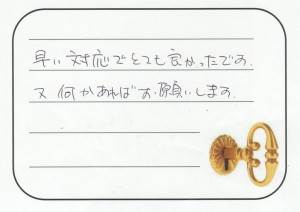 早い対応でとても良かったです.
又何かあればお願いします.